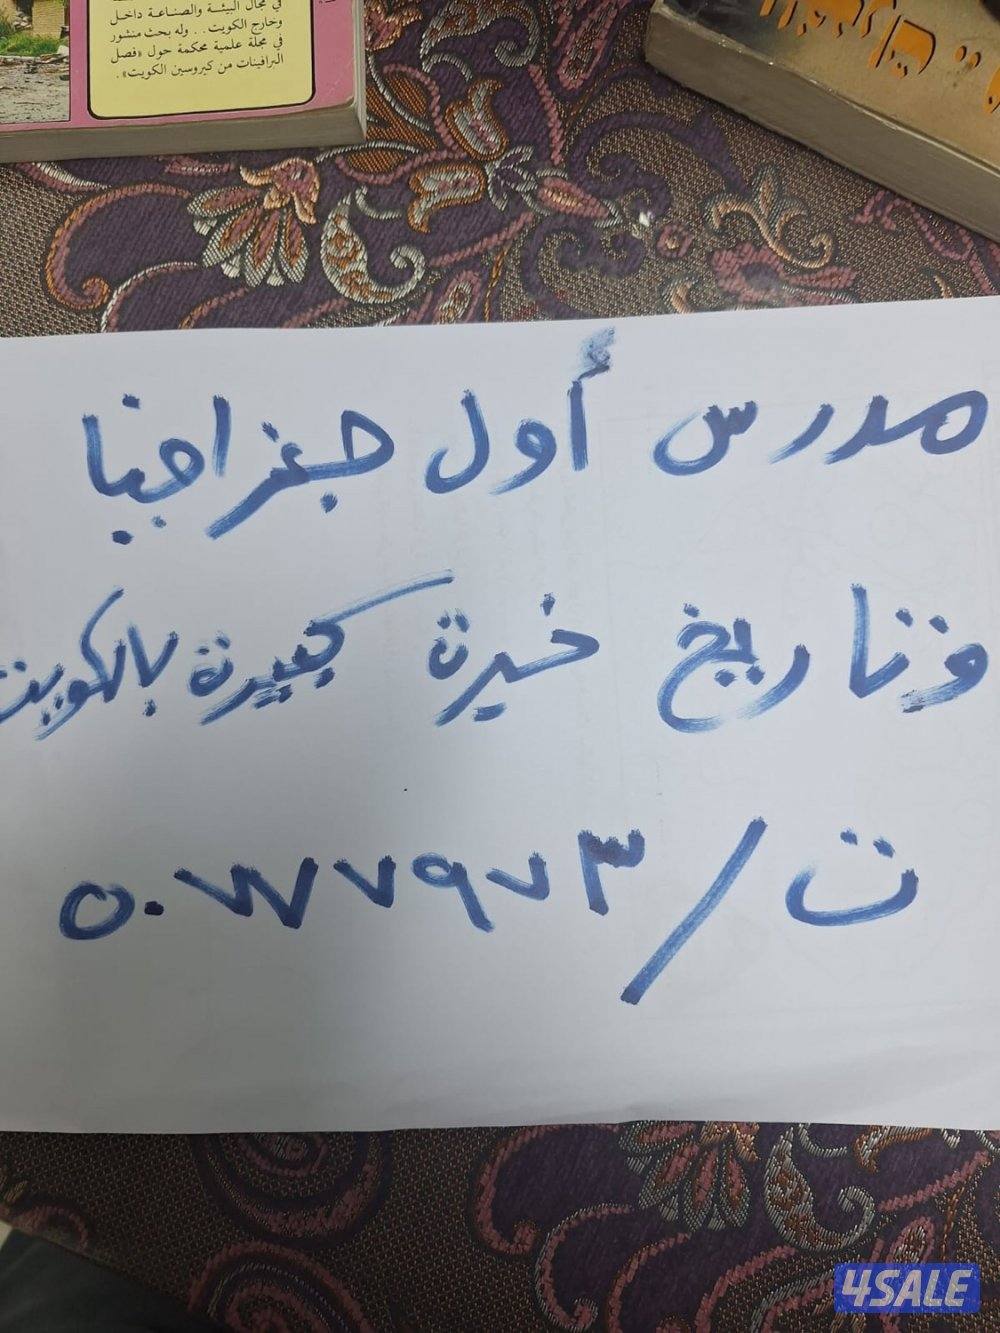 في مجال البيئة والصناعة داخل
وخارج الكويت . . وله بحث منشور
في مجلة علمية محكمة حول «فصل
البرافينات من كيروسين الكويت» .
مدرس أول جغرافيا
وتاريخ خبرة كبيرة بالكويت
ت / ٥٠٧٧٧٩٧٣
4SALE